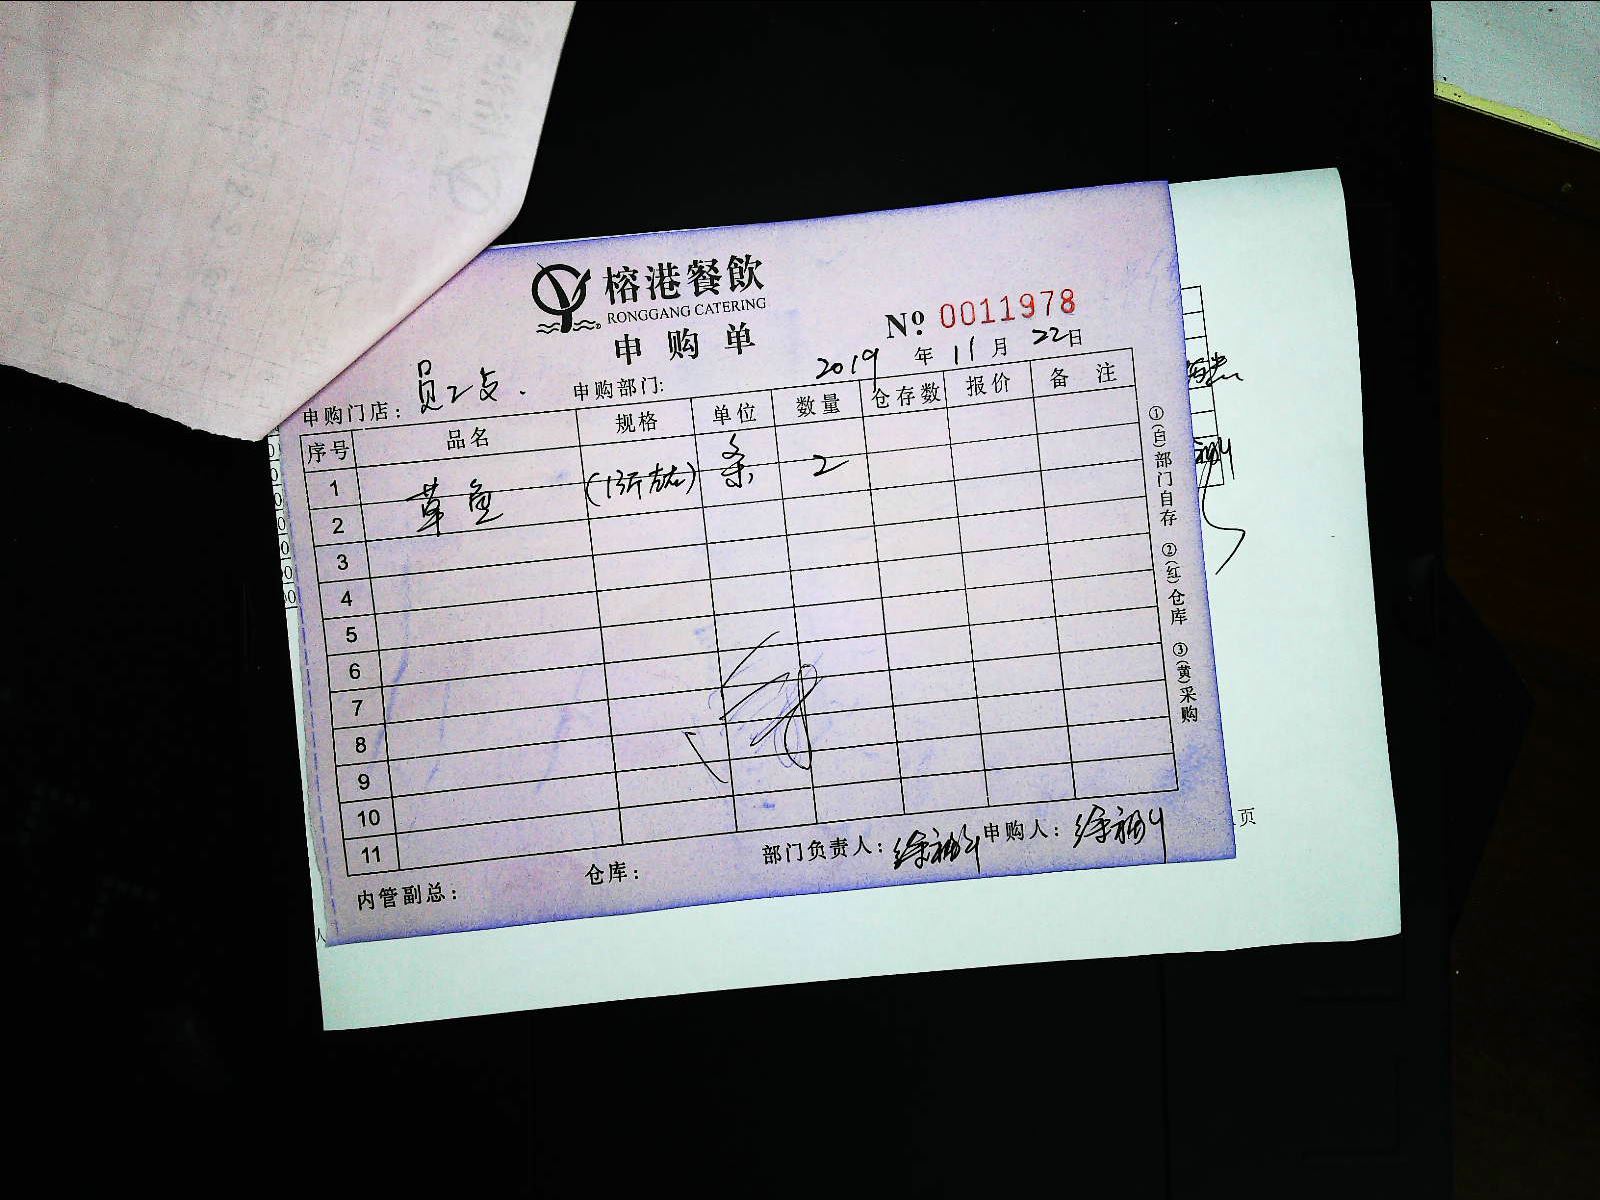 榕港餐飲
RONGGANG CATERING
申购单
№ 0011978
2019 年 11 月 22 日
申购门店： 申购部门:
序号 品名 规格 单位 数量 仓存数 报价 备注
1 草鱼 (13斤左右) 条 2
2
3
4
5
6
7
8
9
10
11
①(白)部门自存 ②(红)仓库 ③(黄)采购
内管副总： 仓库： 部门负责人： 申购人：
页